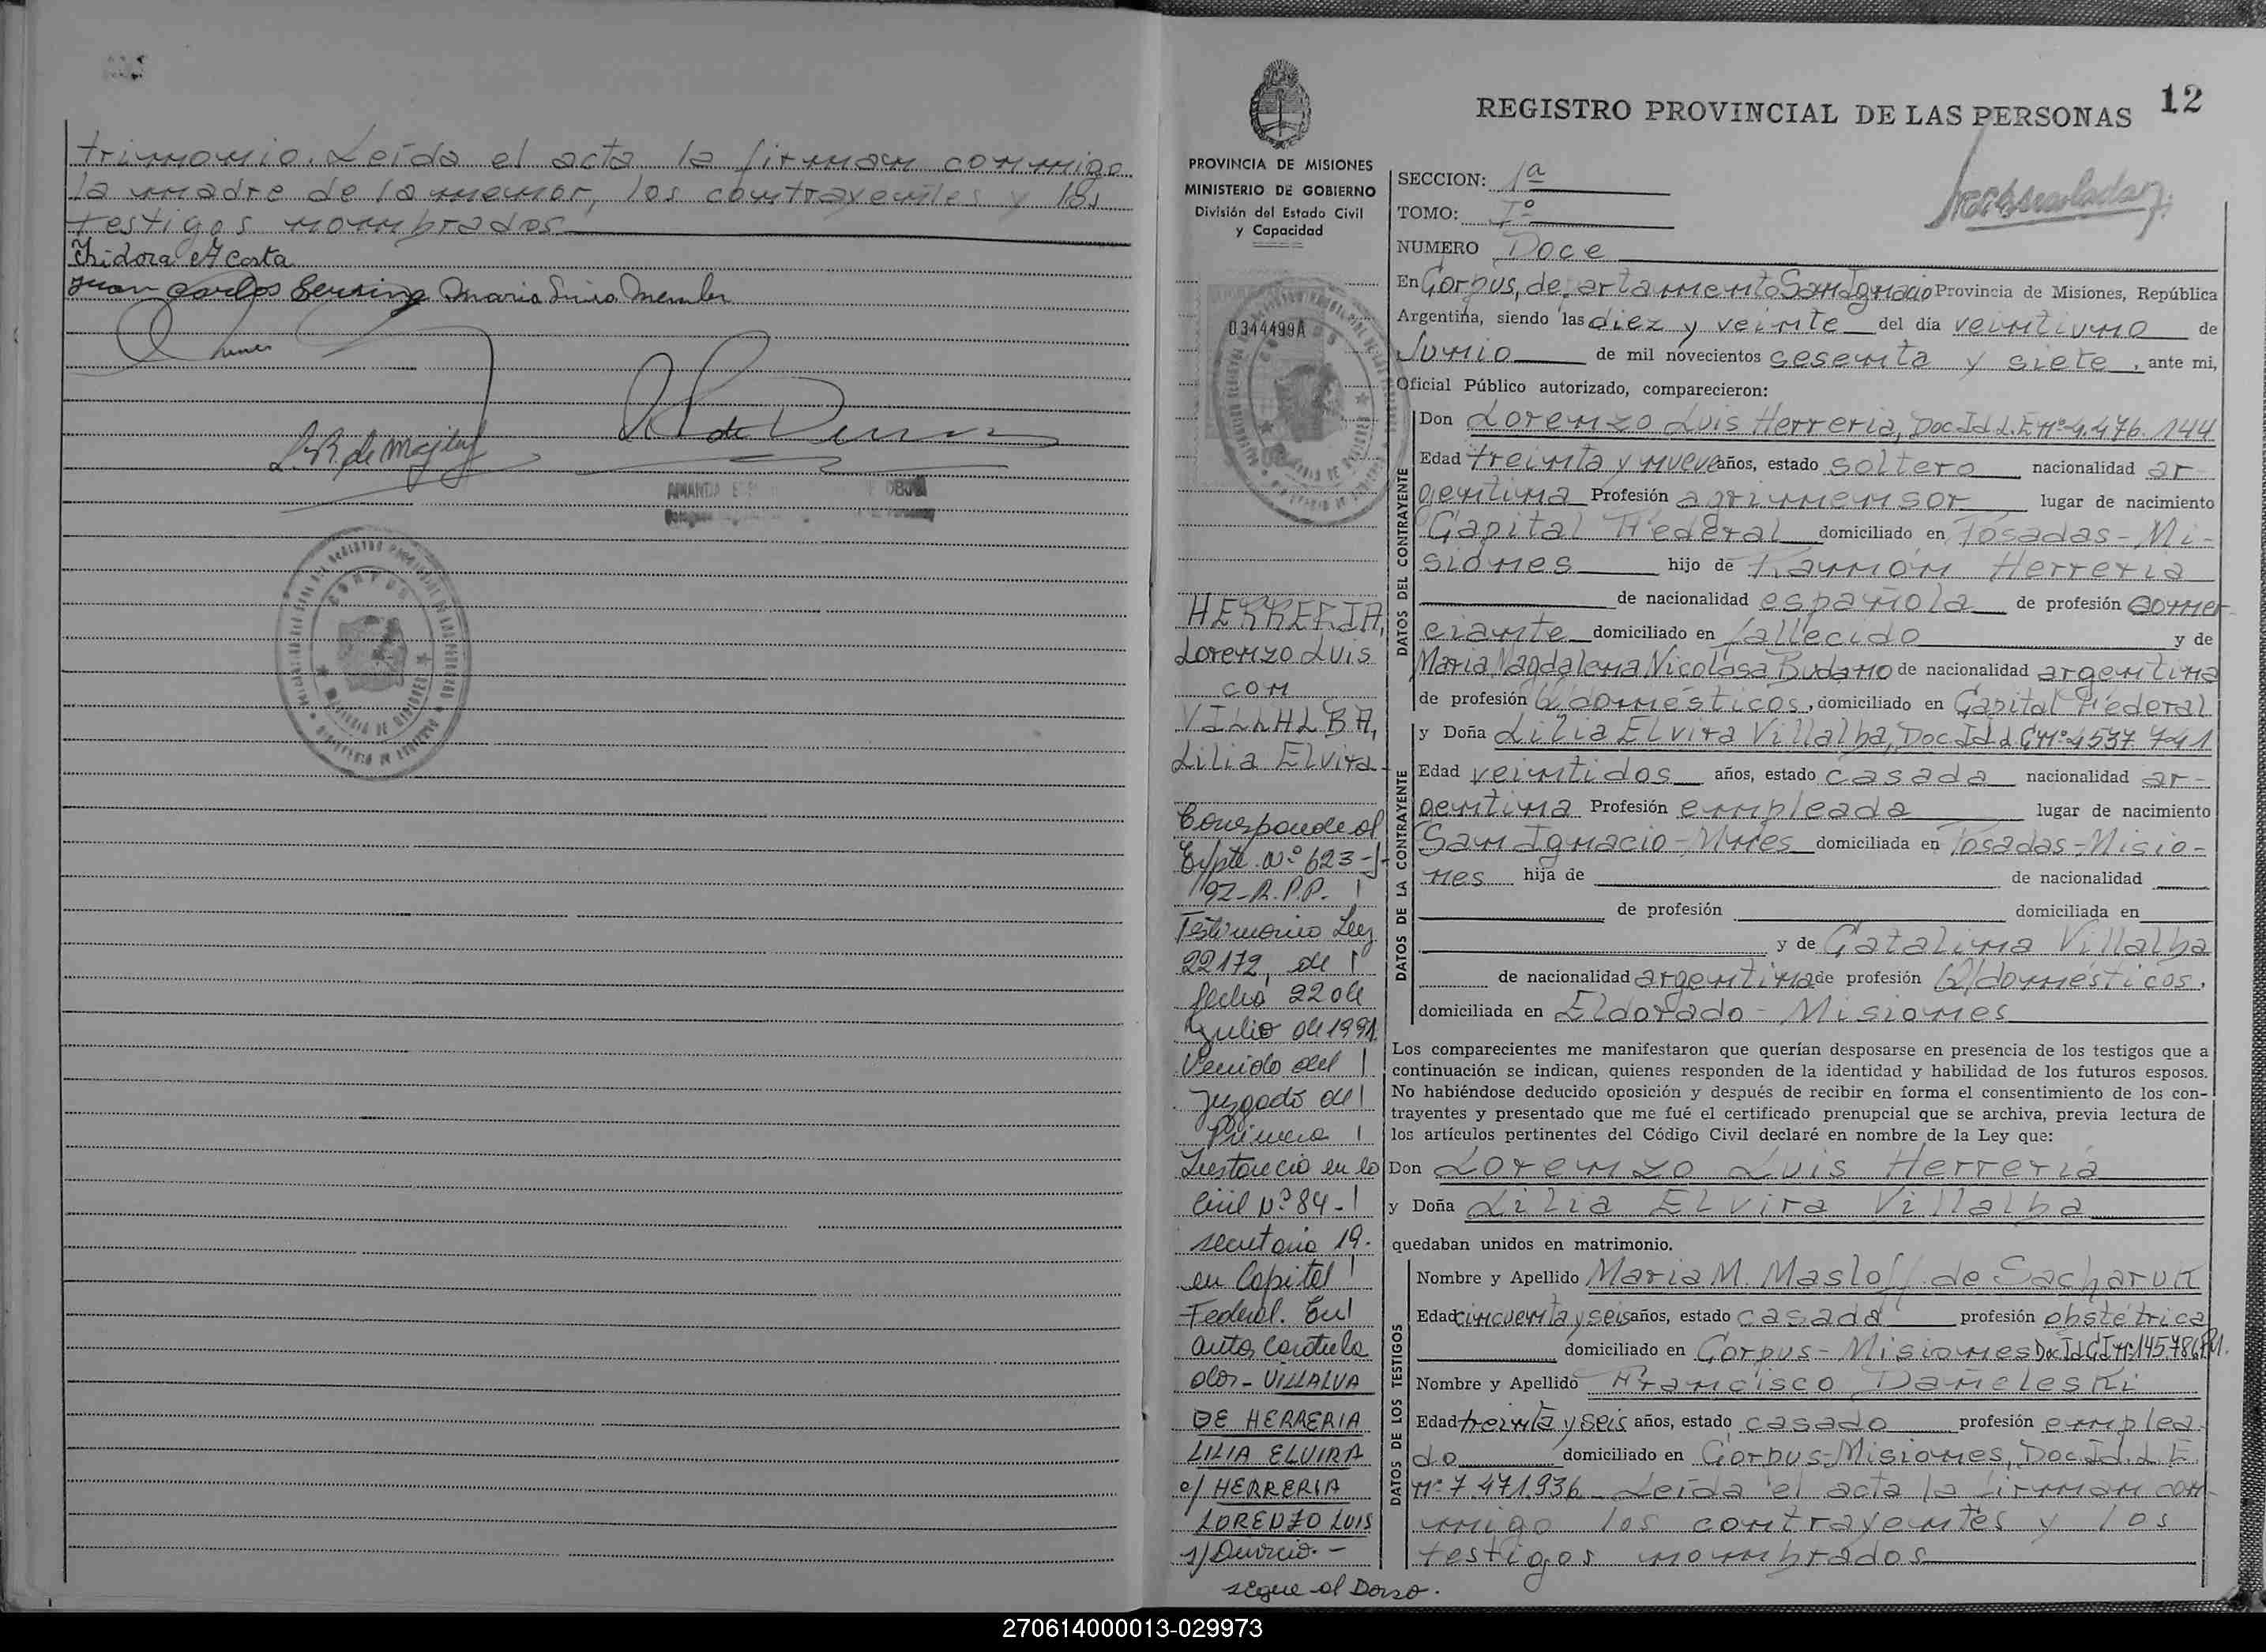 trimonio. Leída el acta la firman conmigo
la madre de la menor, los contrayentes y los
testigos nombrados
Isidora Acosta
Juan Carlos
L. R. de
AMANDA
CORPUS
12
REGISTRO PROVINCIAL DE LAS PERSONAS
PROVINCIA DE MISIONES
MINISTERIO DE GOBIERNO
División del Estado Civil
y Capacidad
0344499A
HERRERIA,
Lorenzo Luis
con
VILLALBA,
Lilia Elvira
Corresponde al
Expte. Nº 623-J-
92-R.P.P.
Testimonio Ley
22172, de
fecha 22 de
julio de 1991
Venido del
Juzgado de
Primera
Instancia en lo
Civil Nº 84-
secretaria 19.
en Capital
Federal. En
autos caratula
dos- VILLALVA
DE HERRERIA
LILIA ELVIRA
c/ HERRERIA
LORENZO LUIS
s/Divorcio.-
sigue al Dorso.
SECCION: 1ª
TOMO: Iº
NUMERO Doce
En Corpus, departamento San Ignacio Provincia de Misiones, República
Argentina, siendo las diez y veinte del día veintiuno de
Junio de mil novecientos sesenta y siete, ante mi,
Oficial Público autorizado, comparecieron:
DATOS DEL CONTRAYENTE
Don Lorenzo Luis Herreria, Doc. Id L.E nº 4.476.144
Edad treinta y nueve años, estado soltero nacionalidad ar-
gentina Profesión agrimensor lugar de nacimiento
Capital Federal domiciliado en Posadas-Mi-
siones hijo de Ramón Herreria
de nacionalidad española de profesión comer-
ciante domiciliado en fallecido y de
Maria Magdalena Nicolasa Budano de nacionalidad argentina
de profesión Q/domésticos, domiciliado en Capital Federal
DATOS DE LA CONTRAYENTE
y Doña Lilia Elvira Villalba, Doc Id L C nº 4537 741
Edad veintidos años, estado casada nacionalidad ar-
gentina Profesión empleada lugar de nacimiento
San Ignacio-Mnes domiciliada en Posadas-Misio-
nes hija de de nacionalidad
de profesión domiciliada en
y de Catalina Villalba
de nacionalidad argentina de profesión Q/domésticos,
domiciliada en Eldorado - Misiones
Los comparecientes me manifestaron que querían desposarse en presencia de los testigos que a
continuación se indican, quienes responden de la identidad y habilidad de los futuros esposos.
No habiéndose deducido oposición y después de recibir en forma el consentimiento de los con-
trayentes y presentado que me fué el certificado prenupcial que se archiva, previa lectura de
los artículos pertinentes del Código Civil declaré en nombre de la Ley que:
Don Lorenzo Luis Herreria
y Doña Lilia Elvira Villalba
quedaban unidos en matrimonio.
DATOS DE LOS TESTIGOS
Nombre y Apellido Maria M. Masloff de Sacharuk
Edad cincuenta y seis años, estado casada profesión obstétrica
domiciliado en Corpus-Misiones Doc Id C I nº 145.786 P.M.
Nombre y Apellido Francisco Daneleski
Edad treinta y seis años, estado casado profesión emplea-
do domiciliado en Corpus-Misiones, Doc. Id. L E
nº 7.471.936. Leida el acta la firman con-
migo los contrayentes y los
testigos nombrados
270614000013-029973